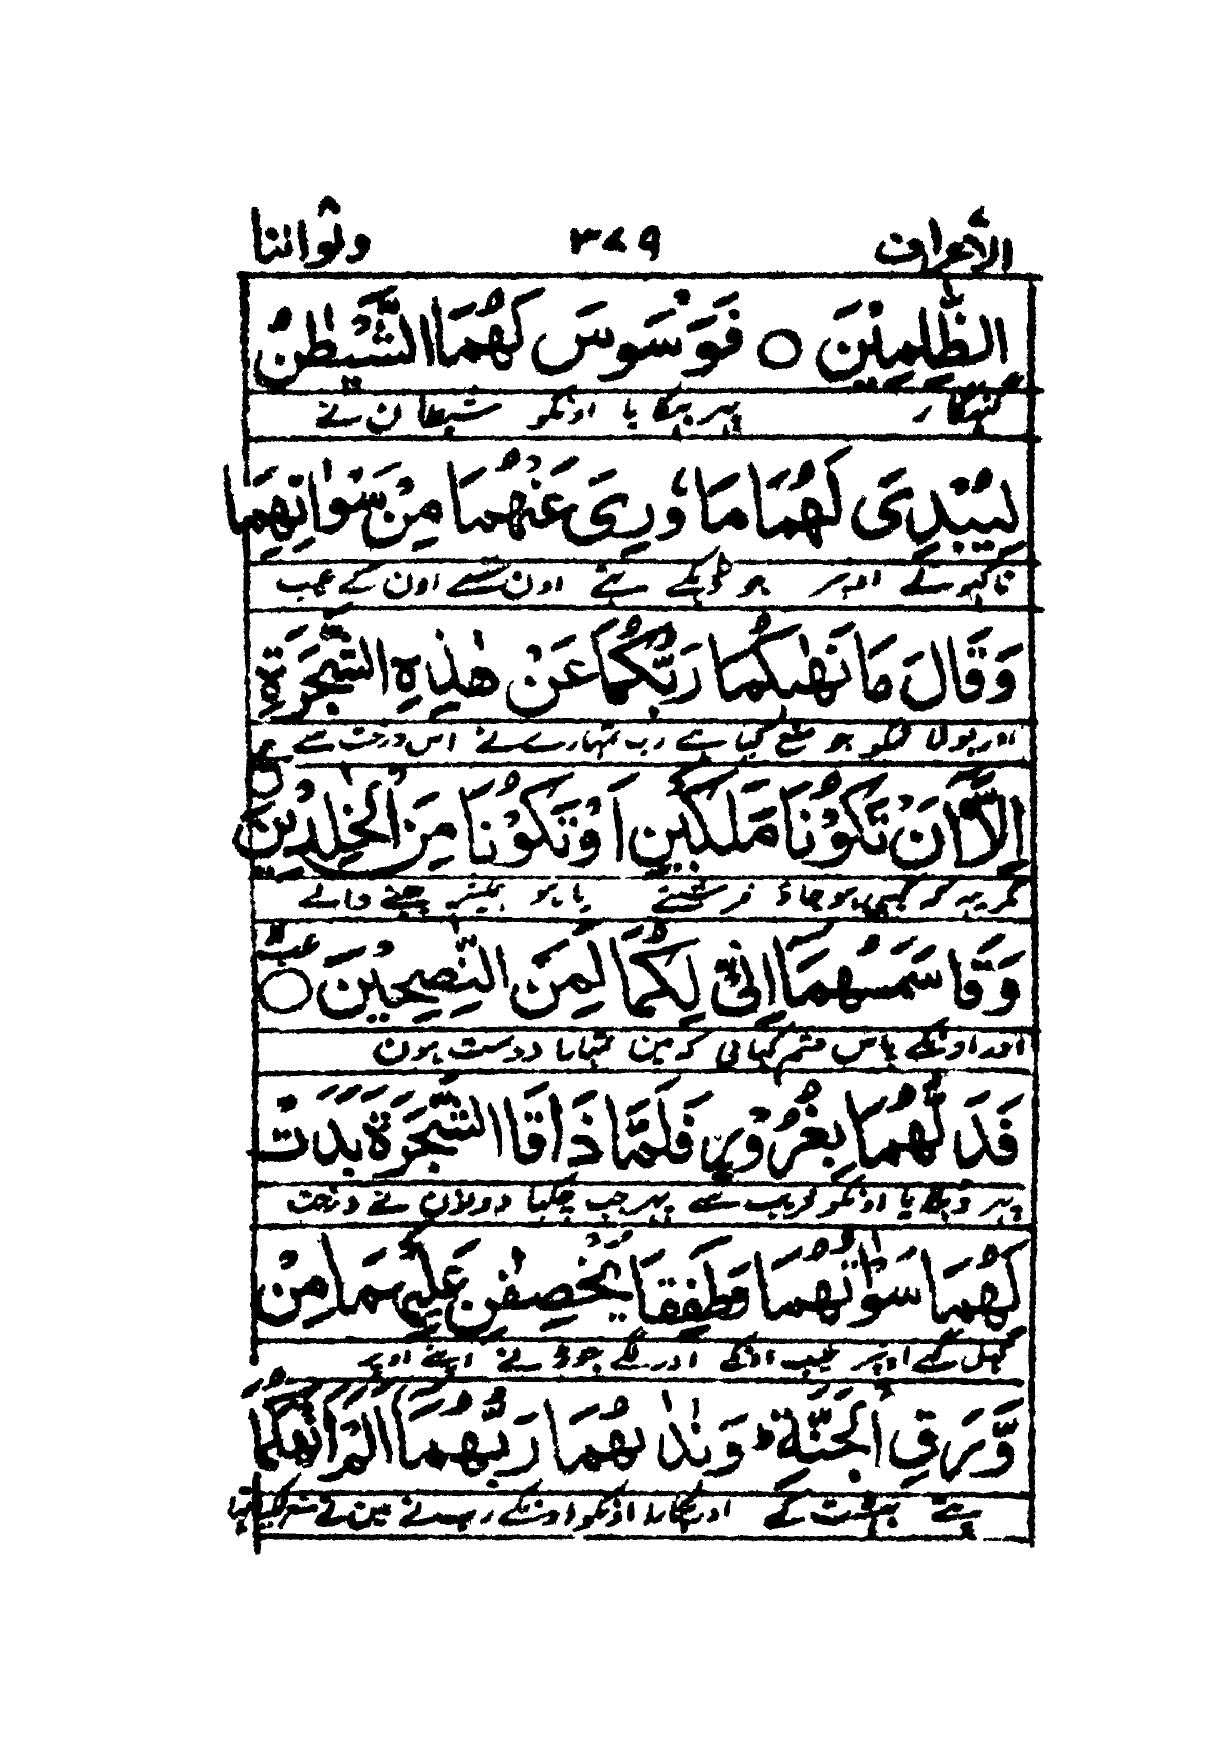 الاعراف ٣٧٩ ولواننا
الظّٰلِمِيْنَ ○ فَوَسْوَسَ لَهُمَا الشَّيْطٰنُ
گنہگار پہر بہکا یا اونکو شیطان نے
لِيُبْدِيَ لَهُمَا مَا وٗرِيَ عَنْهُمَا مِنْ سَوْاٰتِهِمَا
تاکہولے اونپر جو ڈہکے تہے اون سے اون کے عیب
وَقَالَ مَا نَهٰىكُمَا رَبُّكُمَا عَنْ هٰذِهِ الشَّجَرَةِ
اور بولا تمکو جو منع کیا ہے رب تمہارے نے اس درخت سے
اِلَّآ اَنْ تَكُوْنَا مَلَكَيْنِ اَوْ تَكُوْنَا مِنَ الْخٰلِدِيْنَ
مگر یہہ کہ کبہی ہوجاؤ فرشتے یا ہو ہمیشہ جینے والے
وَقَاسَمَهُمَآ اِنِّيْ لَكُمَا لَمِنَ النّٰصِحِيْنَ ○
اور اونکے پاس قسم کہائی کہ مین تمہارا دوست ہون
فَدَلّٰىهُمَا بِغُرُوْرٍ فَلَمَّا ذَاقَا الشَّجَرَةَ بَدَتْ
پہر ڈہلا یا اونکو فریب سے پہر جب چکہا دونون نے درخت
لَهُمَا سَوْاٰتُهُمَا وَطَفِقَا يَخْصِفٰنِ عَلَيْهِمَا مِنْ
کہل گئے اونپر عیب اونکے اور لگے جوڑنے اپنے اوپر
وَّرَقِ الْجَنَّةِ ط وَنَادٰىهُمَا رَبُّهُمَآ اَلَمْ اَنْهَكُمَا
پتے بہشت کے اور پکارا اونکو اونکے رب نے مین نے منع کیا تہا